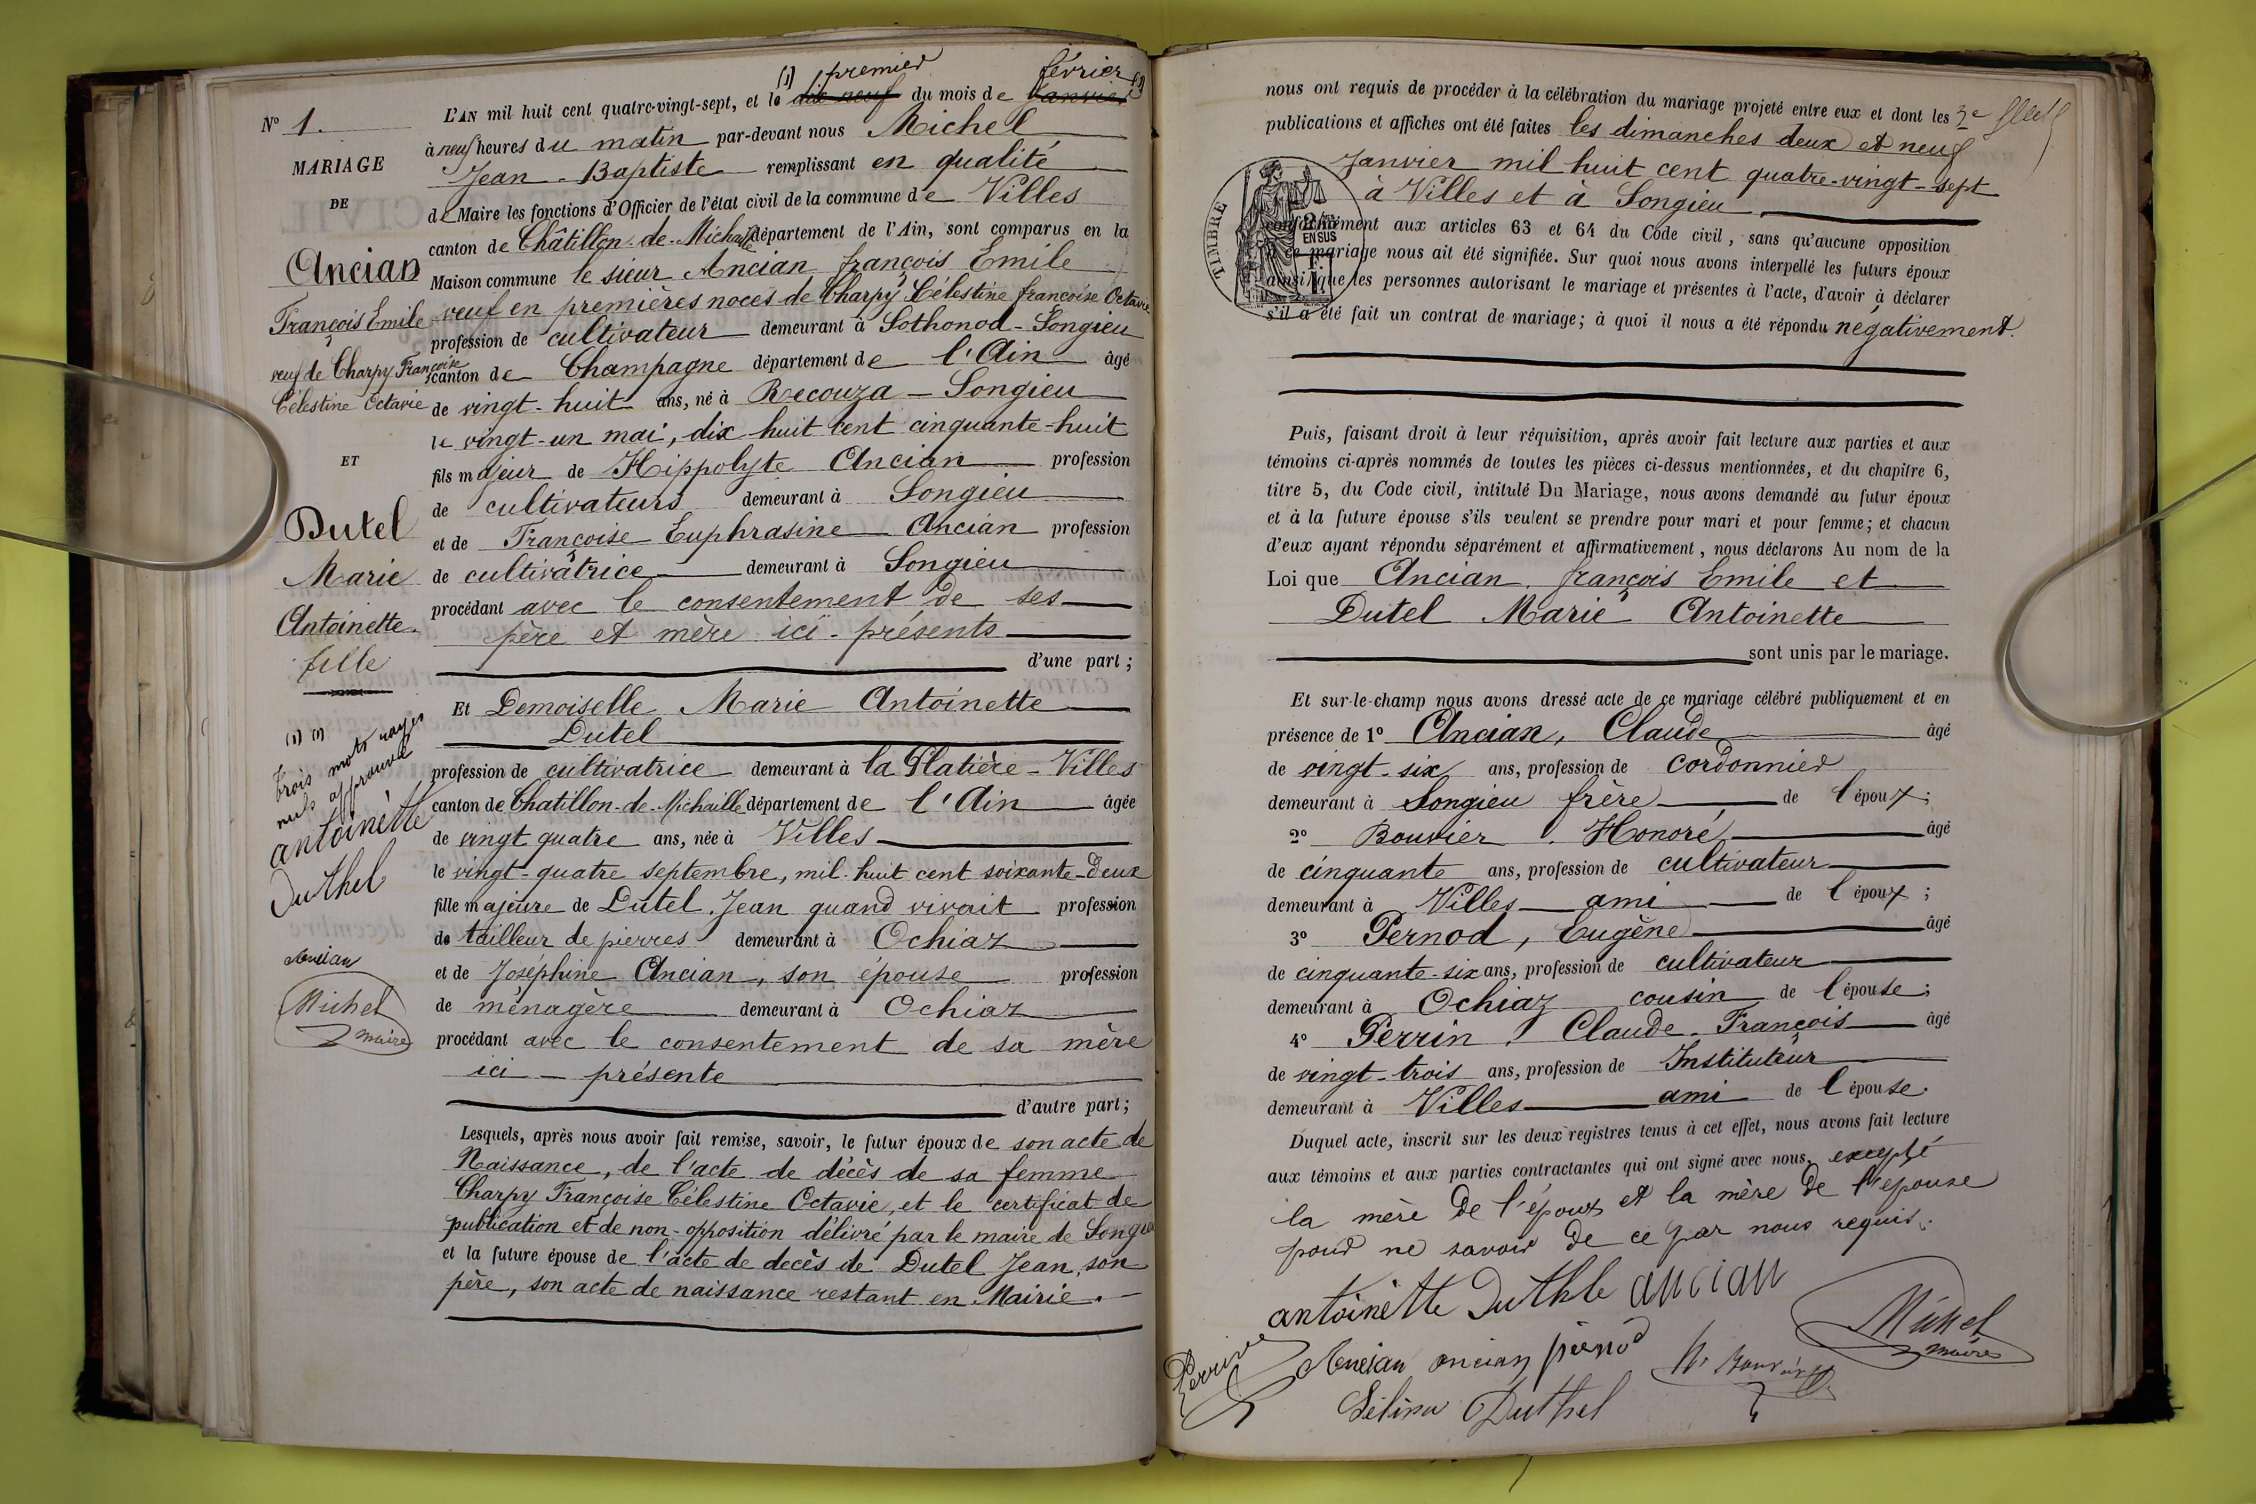 N° 1.
MARIAGE
DE
Ancian
François Emile
veuf de Charpy Françoise
Célestine Octavie
ET
Dutel
Marie
Antoinette.
fille
(1) (1)
trois mots rayés
nuls approuvé
antoinètte
Duthel
Ancian
Michel
maire
(1) premier février (1)
L'AN mil huit cent quatre-vingt-sept, et le dix neuf du mois de Janvier
à neuf heures du matin par-devant nous Michel
Jean-Baptiste remplissant en qualité
de Maire les fonctions d'Officier de l'état civil de la commune de Villes
canton de Châtillon-de-Michaille département de l'Ain, sont comparus en la
Maison commune le sieur Ancian françois Emile
veuf en premières noces de Charpy Célestine françoise Octavie
profession de cultivateur demeurant à Sothonod-Songieu
canton de Champagne département de l'Ain âgé
de vingt-huit ans, né à Recouza – Songieu
le vingt-un mai, dix huit cent cinquante-huit
fils majeur de Hippolyte Ancian profession
de cultivateurs demeurant à Songieu
et de Françoise Euphrasine Ancian profession
de cultivatrice demeurant à Songieu
procédant avec le consentement de ses
père et mère ici-présents
d'une part;
Et Demoiselle Marie Antoinette
Dutel
profession de cultivatrice demeurant à la Platière-Villes
canton de Chatillon-de-Michaille département de l'Ain âgée
de vingt quatre ans, née à Villes
le vingt-quatre septembre, mil-huit cent soixante-deux
fille majeure de Dutel Jean quand vivait profession
de tailleur de pierres demeurant à Ochiaz
et de Joséphine Ancian, son épouse profession
de ménagère demeurant à Ochiaz
procédant avec le consentement de sa mère
ici – présente
d'autre part;
Lesquels, après nous avoir fait remise, savoir, le futur époux de son acte de
Naissance, de l'acte de décès de sa femme
Charpy Françoise Célestine Octavie, et le certificat de
publication et de non-opposition délivré par le maire de Songieu
et la future épouse de l'acte de decès de Dutel Jean, son
père, son acte de naissance restant en Mairie.
nous ont requis de procéder à la célébration du mariage projeté entre eux et dont les
publications et affiches ont été faites les dimanches deux et neuf
Janvier mil huit cent quatre-vingt-sept
à Villes et à Songieu
TIMBRE
EN SUS
conformément aux articles 63 et 64 du Code civil, sans qu'aucune opposition
à ce mariage nous ait été signifiée. Sur quoi nous avons interpellé les futurs époux
ainsi que les personnes autorisant le mariage et présentes à l'acte, d'avoir à déclarer
s'il a été fait un contrat de mariage; à quoi il nous a été répondu négativement.
Puis, faisant droit à leur réquisition, après avoir fait lecture aux parties et aux
témoins ci-après nommés de toutes les pièces ci-dessus mentionnées, et du chapitre 6,
titre 5, du Code civil, intitulé Du Mariage, nous avons demandé au futur époux
et à la future épouse s'ils veulent se prendre pour mari et pour femme; et chacun
d'eux ayant répondu séparément et affirmativement, nous déclarons Au nom de la
Loi que Ancian françois Emile et
Dutel Marie Antoinette
sont unis par le mariage.
Et sur-le-champ nous avons dressé acte de ce mariage célébré publiquement et en
présence de 1° Ancian, Claude âgé
de vingt-six ans, profession de cordonnier
demeurant à Songieu frère de l'époux;
2° Bouvier Honoré âgé
de cinquante ans, profession de cultivateur
demeurant à Villes ami de l'époux;
3° Pernod, Eugène âgé
de cinquante-six ans, profession de cultivateur
demeurant à Ochiaz cousin de l'épouse;
4° Perrin, Claude-François âgé
de vingt-trois ans, profession de Instituteur
demeurant à Villes ami de l'épouse.
Duquel acte, inscrit sur les deux registres tenus à cet effet, nous avons fait lecture
aux témoins et aux parties contractantes qui ont signé avec nous, excepté
la mère de l'époux et la mère de l'épouse
pour ne savoir de ce par nous requis.
antoinètte Duthle ancian
Michel
maire
Perrin
Ancian ancian pernod H. Bouvier
Duthel